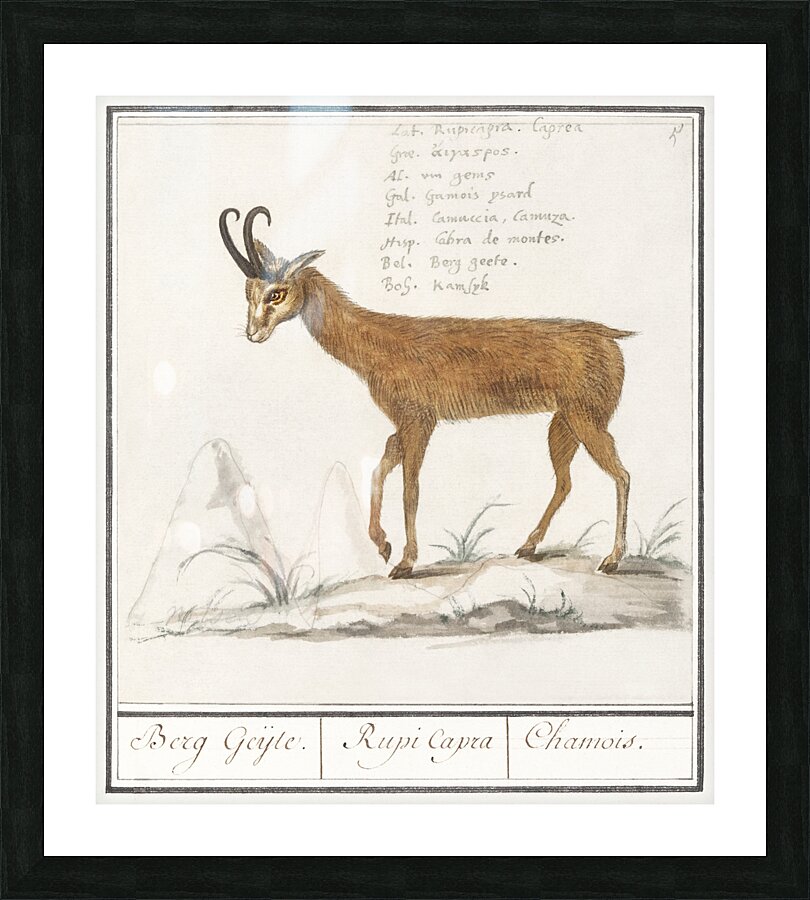 Lat. Rupicapra. Caprea
5
Græ. ἀίγασρος.
Al. vm gems
Gal. Gamois ysard
Ital. Camuccia, Camuza.
Hisp. Cabra de montes.
Bel. Berg geete.
Boh. Kamsyk
Berg Geÿte. Rupi Capra Chamois.